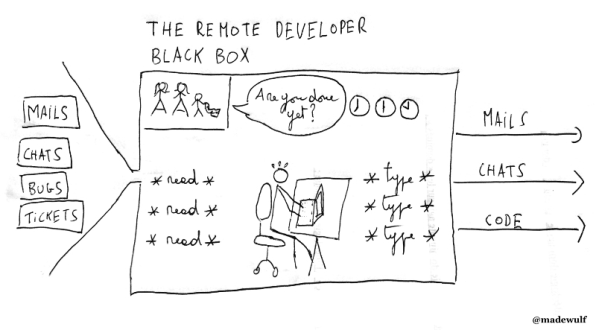 THE REMOTE DEVELOPER
BLACK BOX
Are you done
yet?
MAILS
CHATS
BUGS
TICKETS
* read *
* read *
* read *
* type *
* type *
* type *
MAILS
CHATS
CODE
@madewulf